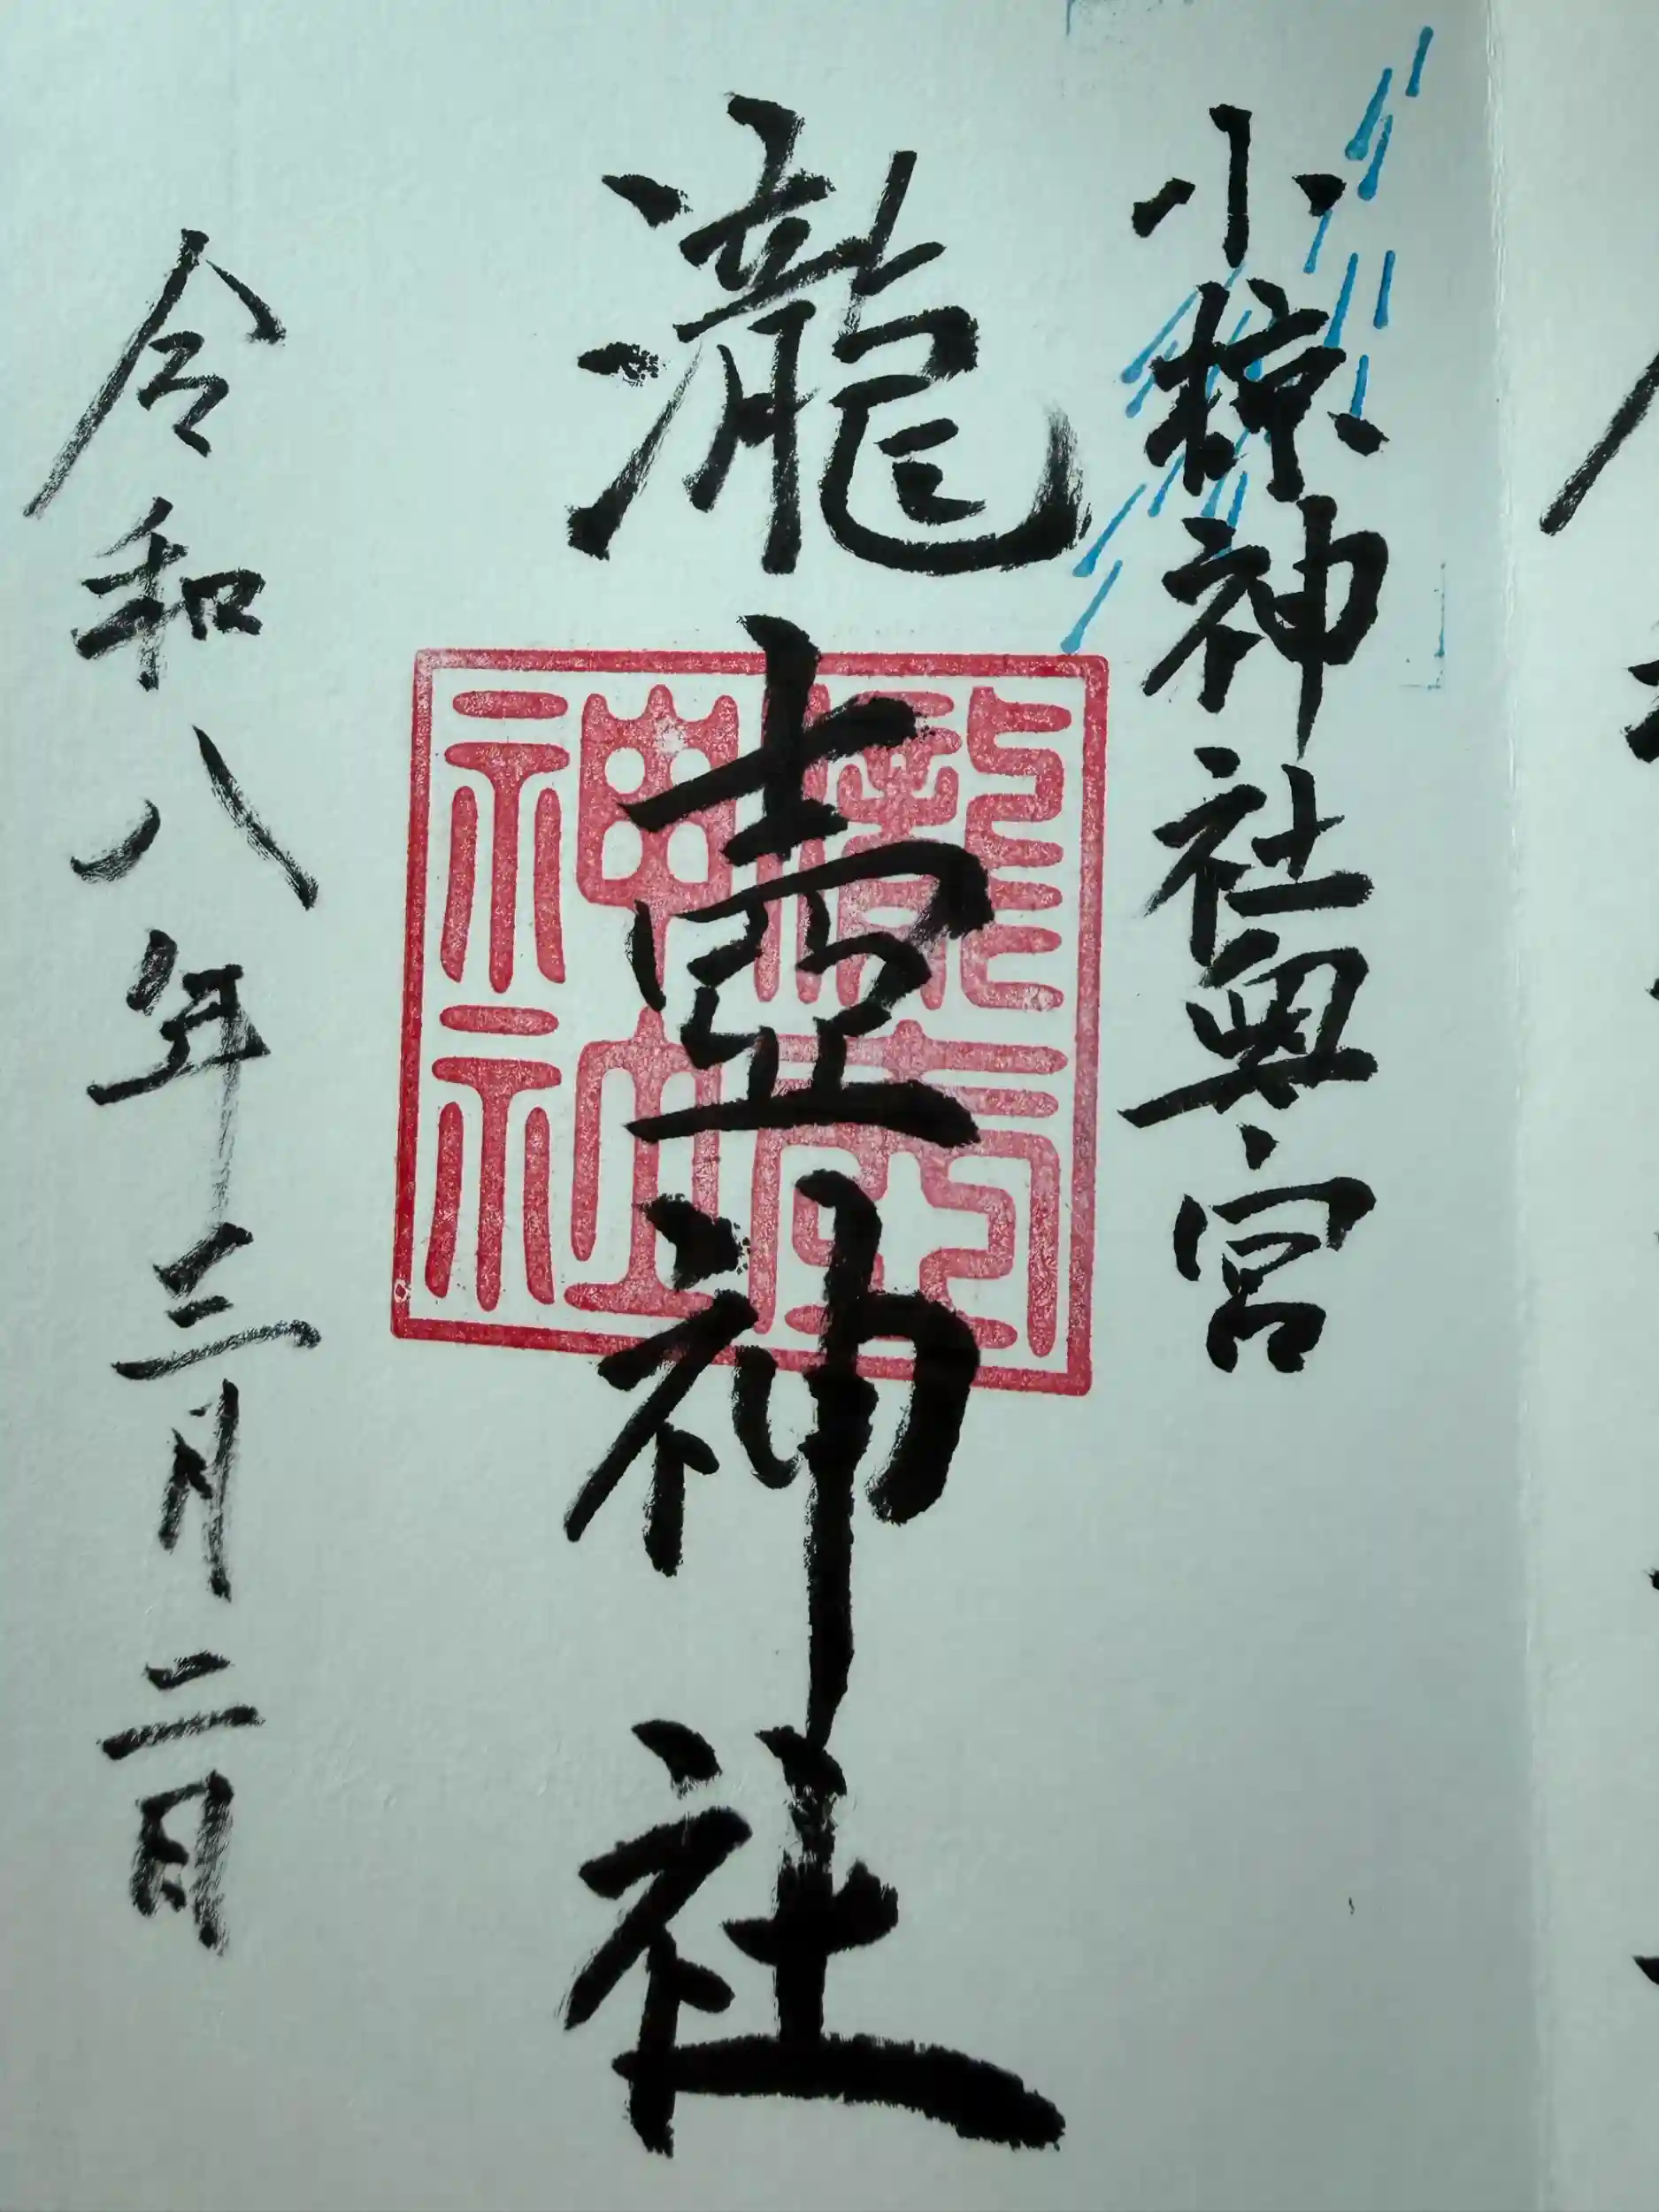 小椋神社奥宮
瀧壷神社
瀧壷神社
令和八年三月二日